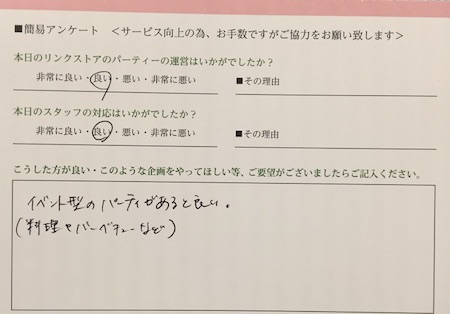 ■簡易アンケート <サービス向上の為、お手数ですがご協力をお願い致します>
本日のリンクストアのパーティーの運営はいかがでしたか?
非常に良い・良い・悪い・非常に悪い ■その理由
本日のスタッフの対応はいかがでしたか?
非常に良い・良い・悪い・非常に悪い ■その理由
こうした方が良い・このような企画をやってほしい等、ご要望がございましたらご記入ください。
イベント型のパーティがあると良い。
(料理やバーベキューなど)